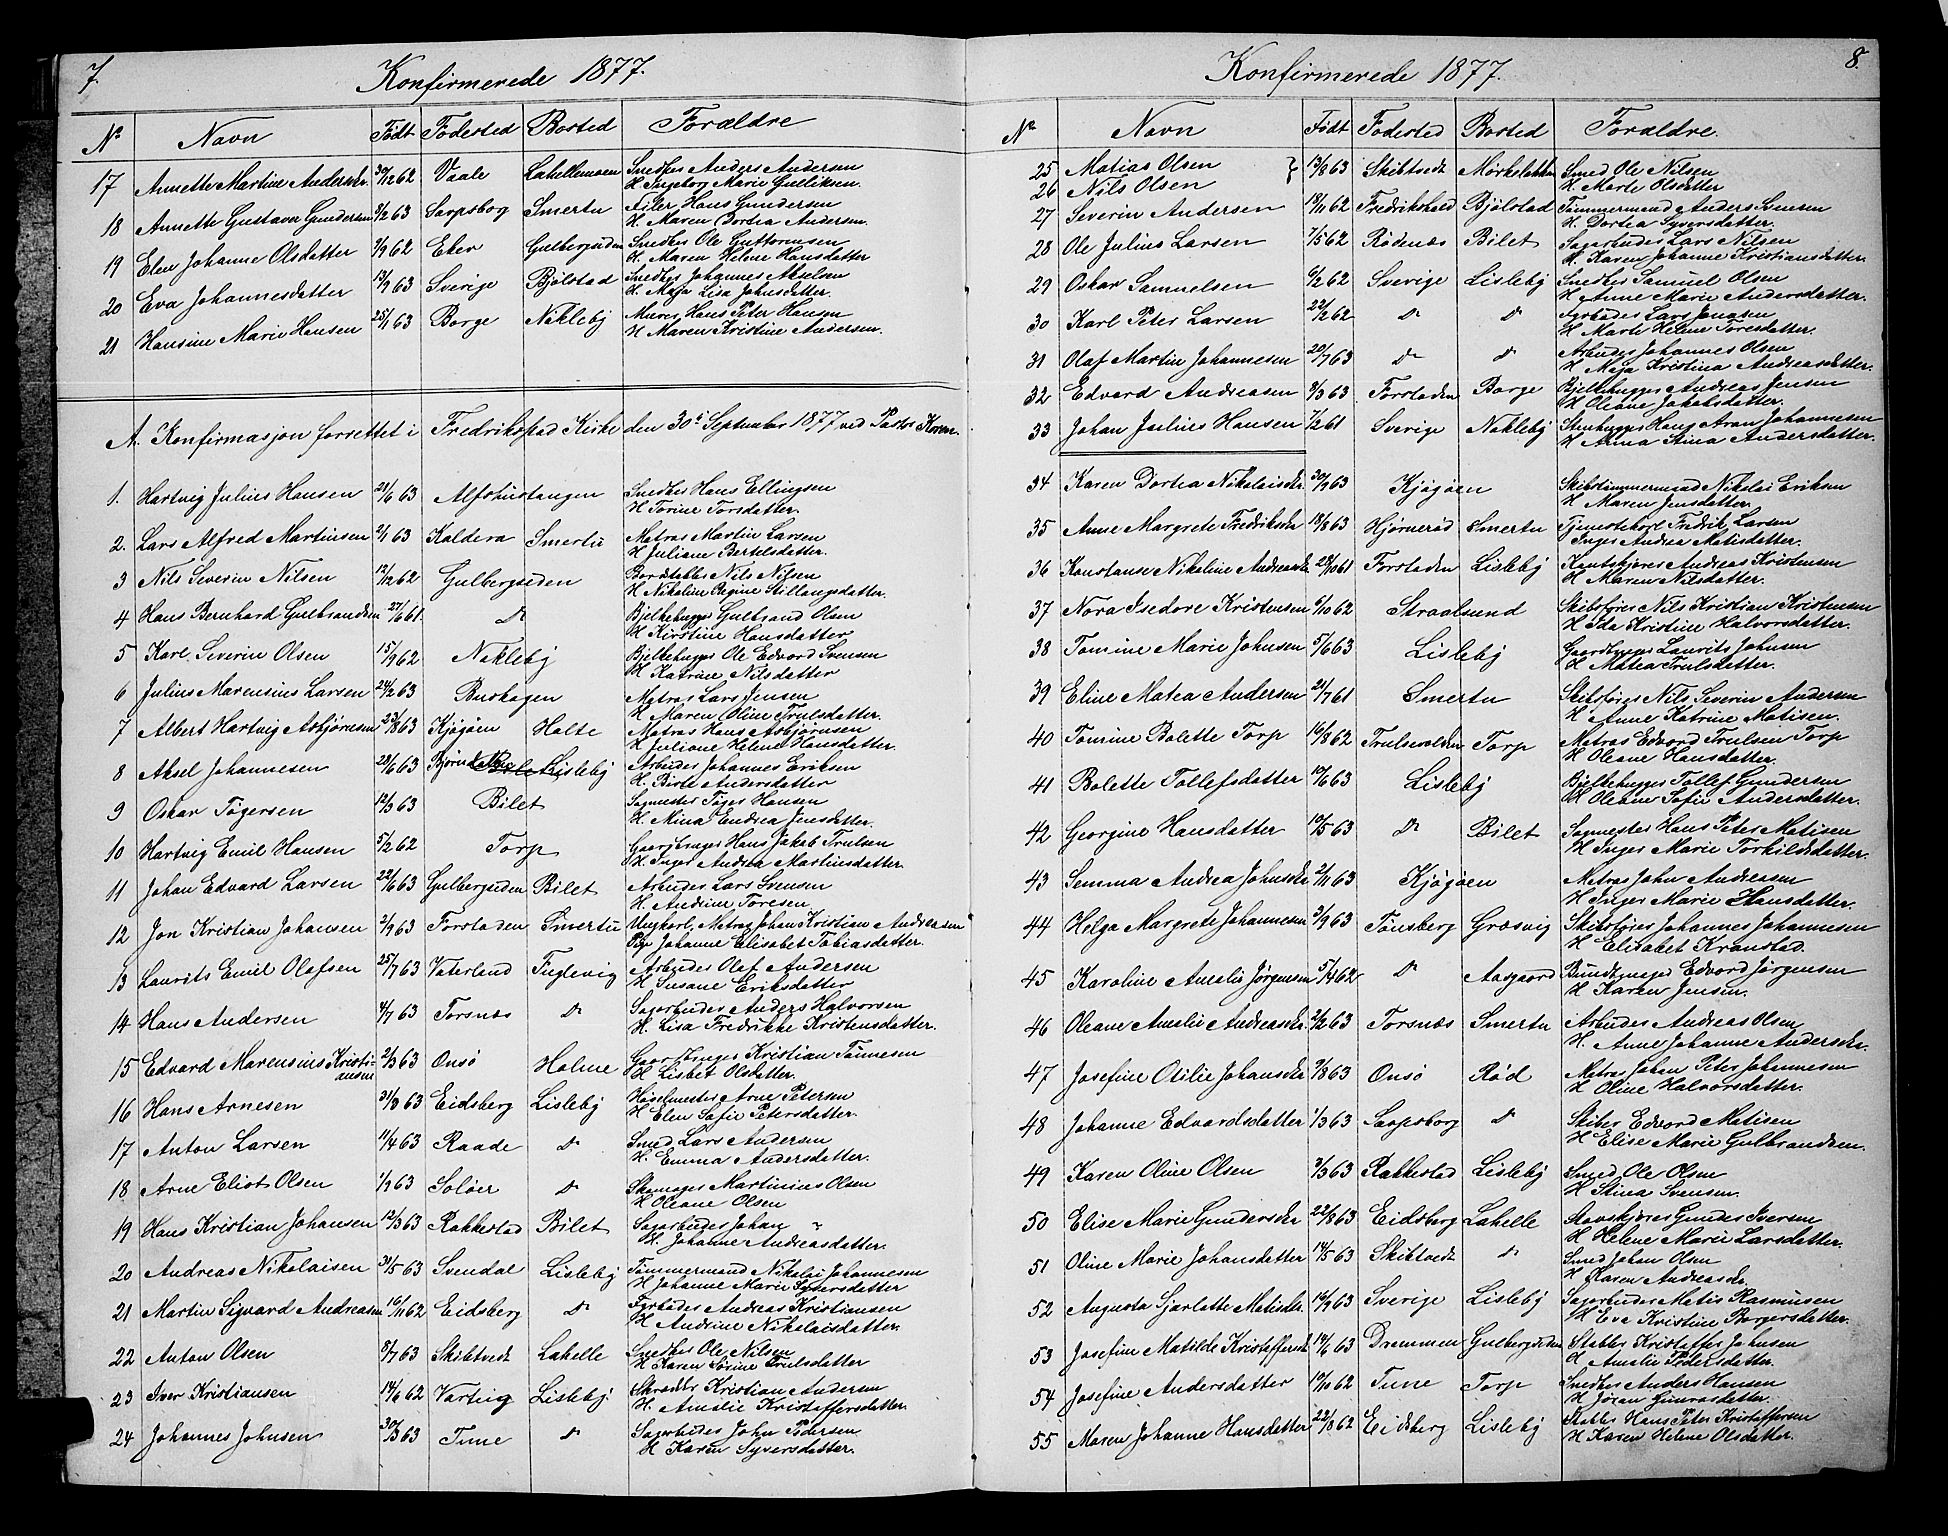 7.
Konfirmerede 1877.
No Navn Født Fødested Bosted Forældre
17 Annette Martine Andersdr. 30/12 62 Vaale Lahellemoen Snedker Anders Andersen
H. Ingeborg Marie Gulliksen.
18 Annette Gustava Gundersen 3/2 63 Sarpsborg Smertu Filer Hans Gundersen
H. Maren Bortea Andersen.
19 Elen Johanne Olsdatter 3/9 62 Eker Gulbergsiden Snedker Ole Guttormsen
H. Maren Helene Hansdatter
20 Eva Johannesdatter 13/9 63 Sverige Bjölstad Snedker Johannes Akselsen
H. Maja Lisa Johnsdatter.
21 Hansine Marie Hansen 25/1 63 Borge Nökleby Murer Hans Peter Hansen
H Maren Kristine Andersen.
A. Konfirmasjon forrettet i Fredrikstad Kirke den 30te September 1877 ved Pastor Koren.
1. Hartvig Julius Hansen 21/6 63 Alfshustangen Snedker Hans Ellingsen
H Torine Torsdatter.
2. Lars Alfred Martinsen 2/1 63 Kaldera Smertu Matros Martin Larsen
H Juliane Bertelsdatter.
3 Nils Severin Nilsen 12/12 62 Gulbergsiden Bordstabler Nils Nilsen
H Nikoline Regine Stillaugsdatter.
4 Hans Bernhard Gulbrandsen 27/6 61. do Bjelkehugger Gulbrand Olsen
H Kirstine Hansdatter
5 Karl Severin Olsen 15/9 62 Nökleby Bjelkehugger Ole Edvard Svensen
H Katrine Nilsdatter
6 Julius Marensius Larsen 24/2 63 Buskogen Matros Lars Jensen
H Maren Oline Trulsdatter.
7 Albert Hartvig Asbjørnsen 23/8 63 Kjøgøen Holte Matros Hans Asbjørnsen
H Juliane Helene Hansdatter.
8 Aksel Johannesen 28/6 63 Lisleby Arbeider Johannes Eriksen
H. Birte Andersdatter
9 Oskar Tøgersen 12/3 63 Bilet Sagmester Tøger Hansen
H. Mina Endrea Jensdatter.
10 Hartvig Emil Hansen 5/2 62 Torp Gaardbruger Hans Jakob Trulsen
H Inger Andrea Martinsdatter.
11 Johan Edvard Larsen 22/6 63 Gulbergsiden Bilet Arbeider Lars Svensen
H. Andrine Toresen.
12 Jon Kristian Johansen 2/9 63 Forstaden Smertu Ungkarl, Matros Johan Kristian Andreasen
Pige Johanne Elisabet Tobiasdatter.
13 Laurits Emil Olafsen 25/7 63 Vaterland Fuglevig Arbeider Olaf Andersen
H Susane Eriksdatter
14 Hans Andersen 4/7 63 Torsnæs do Sagarbeider Anders Halvorsen
H. Lisa Fredrikke Kristensdatter.
15 Edvard Marensius Kristi-
ansen 2/3 63 Onsø Holme Gaardbruger Kristian Tønnesen
H Lisbet Olsdatter.
16 Hans Arnesen 31/3 63 Eidsberg Lisleby Høvelmester Arne Petersen
H Elen Sofie Petersdatter.
17 Anton Larsen 11/4 63 Raade do Smed Lars Andersen
H. Emma Andersdatter.
18 Arne Eliot Olsen 1/9 63 Solöer do Skomager Martinius Olsen
H Oleane Olsen
19 Hans Kristian Johansen 12/3 63 Rakkestad Bilet Sagarbeider Johan "
H. Johanne Andreasdatter.
20 Andreas Nikolaisen 31/5 63 Svendal Lisleby Tømmermand Nikolai Johannesen
H Johanne Marie Syversdatter
21 Martin Sigvard Andreasen 16/11 62 Eidsberg do Fyrbøder Andreas Kristiansen
H Andrine Nikolaisdatter.
22 Anton Olsen 8/7 63 Skibtvedt Lahelle Snedker Ole Nilsen
H Karen Sørine Trulsdatter
23 Iver Kristiansen 14/6 62 Varteig Lisleby Skrædder Kristian Andersen
H. Amalie Kristoffersdatter.
24 Johannes Johnsen 30/3 63 Tune do Sagarbeider John Pedersen
H Karen Syversdatter.
8.
Konfirmerede 1877.
No Navn Født Fødested Bosted Forældre.
25 Matias Olsen } 13/8 63 Skibtvedt Smed Ole Nilsen
26 Nils Olsen H. Marte Olsdatter
27 Severin Andersen 19/11 62 Fredrikshald Bjölstad Tømmermand Anders Svensen
H. Dortea Syversdatter.
28 Ole Julius Larsen 7/5 62 Rødenæs Bilet Sagarbeider Lars Nilsen
H. Karen Johanne Kristiansdatter.
29 Oskar Samuelsen 6/2 62 Sverige Lisleby Snedker Samuel Olsen
H Anne Marie Andersdatter.
30 Karl Peter Larsen 22/2 62 do do Fyrbøder Lars Jonasen
H Marte Helene Toresdatter.
31 Olaf Martin Johannesen 20/7 63 do do Arbeider Johannes Olsen
H Maja Kristina Andreasdatter.
32 Edvard Andreasen 9/3 63 Forstaden Borge Bjelkehugger Andreas Jensen
H Oleane Jakobsdatter.
33 Johan Julius Hansen 7/2 61 Sverige Nökleby Stenhugger Hans Aron Johannesen
H Anna Stina Andersdatter.
34 Karen Dortea Nikolaisdr 30/9 63 Kjøgøen Skibstømmermand Nikolai Eriksen
H Maren Jensdatter.
35 Anne Margrete Fredriksdr 18/8 63 Hjørnerød Smertu Tjenestekarl Fredrik Larsen
Inger Andrea Matisdatter.
36 Konstanse Nikoline Andreasdr. 29/10 61 Forstaden Lisleby Andreas Kristensen
H. Maren Nilsdatter.
37 Nora Isedore Kristensen 6/10 62 Straalsund Skibsfører Nils Kristian Kristensen
H Ida Kristine Halvorsdatter.
38 Tomine Marie Johnsen 5/6 63 Lisleby Gaardbruger Laurits Johnsen
H Matea Trulsdatter.
39 Eline Matea Andersen 21/7 61 Smertu Skibsfører Nils Severin Andersen
H Anne Katrine Matisen.
40 Tomine Bolette Torp 16/8 62 Trulsvolden Torp Matros Edvard Trulsen Torp
H Oleane Hansdatter.
41 Bolette Tollefsdatter 12/6 63 Lisleby Bjelkehugger Tollef Gundersen
H Oleane Sofie Andersdatter.
42 Georgine Hansdatter 12/5 63 do Bilet Sagmester Hans Peter Matisen
H Inger Marie Torkildsdatter.
43 Semma Andrea Johnsdr 2/11 63 Kjøgøen Matros John Andreasen
H Inger Marie Hansdatter.
44 Helga Margrete Johannesen 3/9 63 Tønsberg Græsvig Skibsfører Johannes Johannesen
H Elisabet Kranstad.
45 Karoline Amalie Jørgensen 5/4 62 do Aasgaard Edvard Jørgensen
H Karen Jensen.
46 Oleane Amalie Andreasdr. 2/2 63 Torsnæs Smertu Arbeider Andreas Olsen
H. Anne Johanne Andersdr.
47 Josefine Otilie Johansdr 9/8 63 Onsø Rød Matros Johan Peter Johannesen
H Oline Halvorsdatter.
48 Johanne Edvardsdatter 1/3 63 Sarpsborg do Skiber Edvard Matisen
H Elise Marie Gulbrandsen.
49 Karen Oline Olsen 3/3 63 Rakkestad Lisleby Smed Ole Olsen
H Stina Svensen.
50 Elise Marie Gundersdr 22/8 63 Eidsberg Lahelle Stavskjærer Gunder Iversen
H Helene Marie Larsdatter.
51 Oline Marie Johansdatter 14/5 63 Skibtvedt do Smed Johan Olsen
H Karen Andreasdr.
52 Augusta Sjarlotte Matisdr. 12/9 63 Sverige Lisleby Sagarbeider Matis Rasmusen
H Eva Kristine Borgersdatter.
53 Josefine Matilde Kristoffersd. 14/6 63 Drammen Gulbergsiden Stabler Kristoffer Johnsen
H Amalie Pedersdatter.
54 Josefine Andersdatter 19/10 62 Tune Torp Snedker Anders Hansen
H Jøran Gunarsdatter.
55 Maren Johanne Hansdatter 22/8 62 Eidsberg Lisleby Stabler Hans Peter Kristoffersen
H Karen Helene Olsdatter.